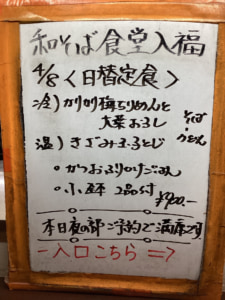 和そば食堂入福
4/8 <日替定食>
冷) カリカリ梅ちりめんと
大葉おろし
そば・うどん
温) きざみ
・かつおふりかけごはん
・小鉢 2品付 ¥900-
本日夜の部ご予約で満席です
入口こちら ⇒